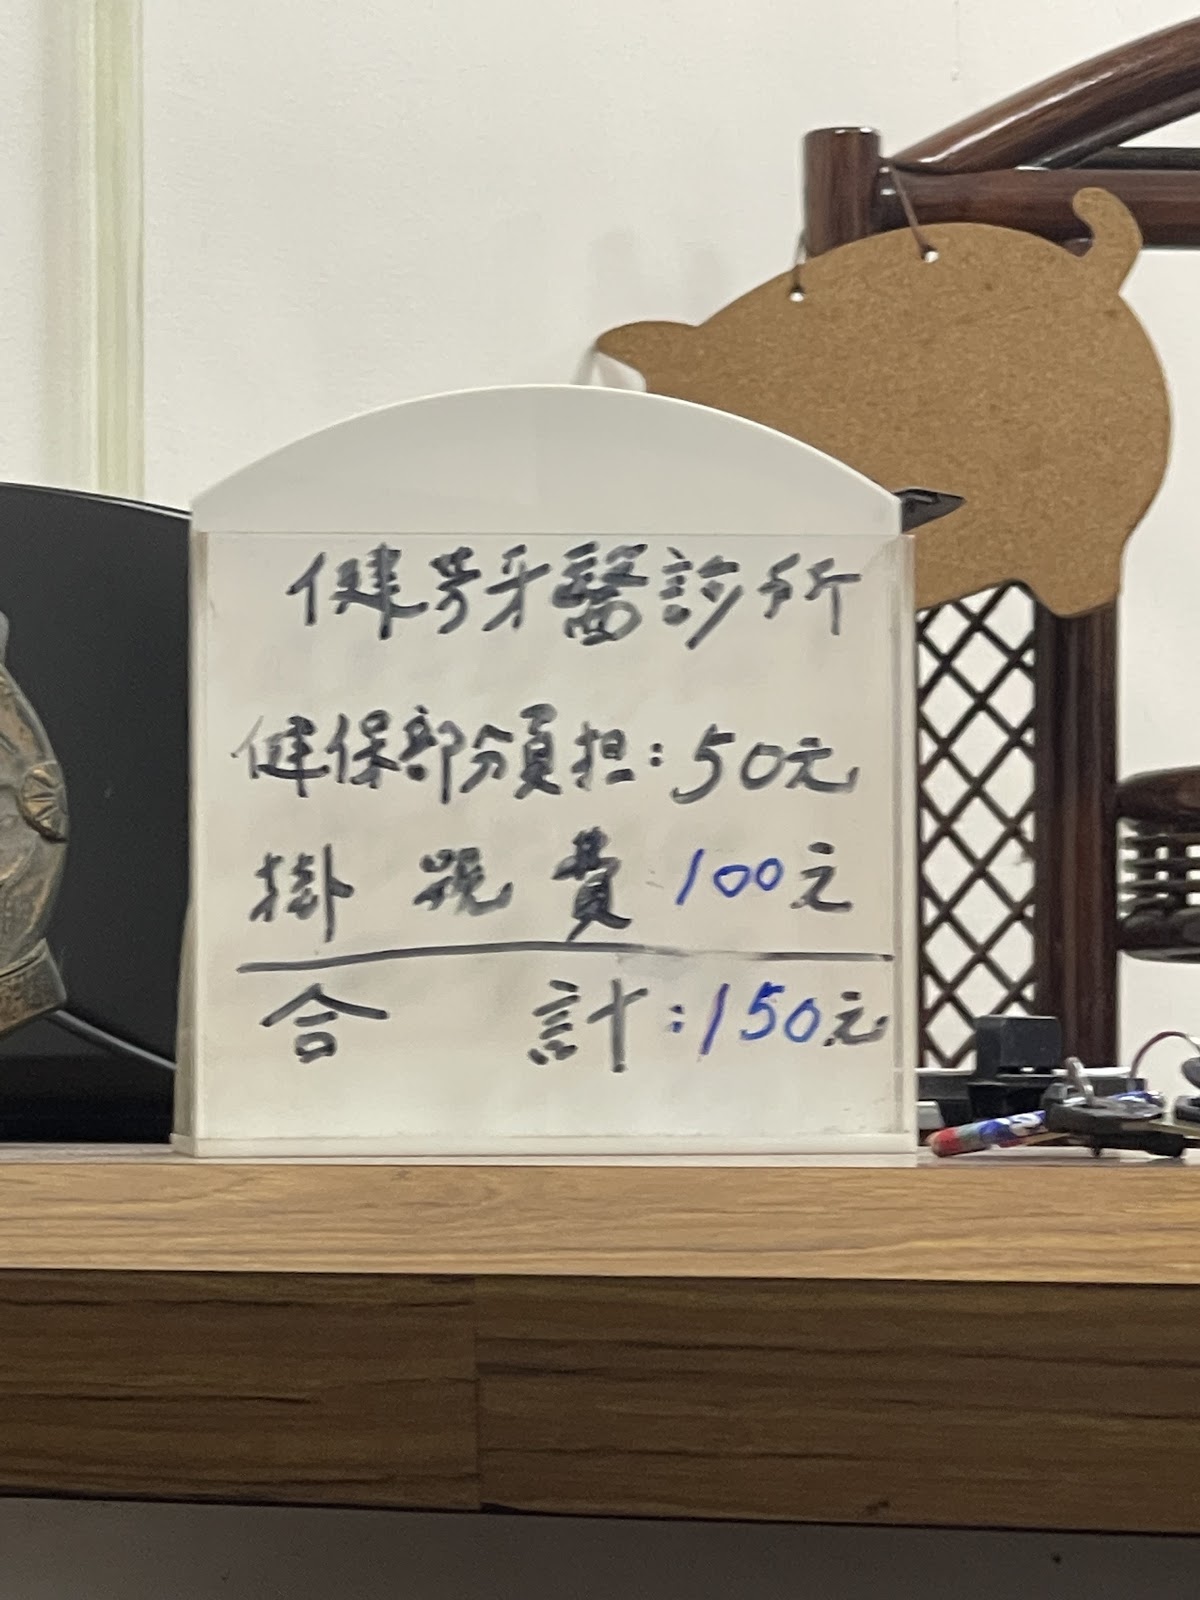 健芳牙醫診所
健保部分負担：50元
掛號費 100元
合計：150元